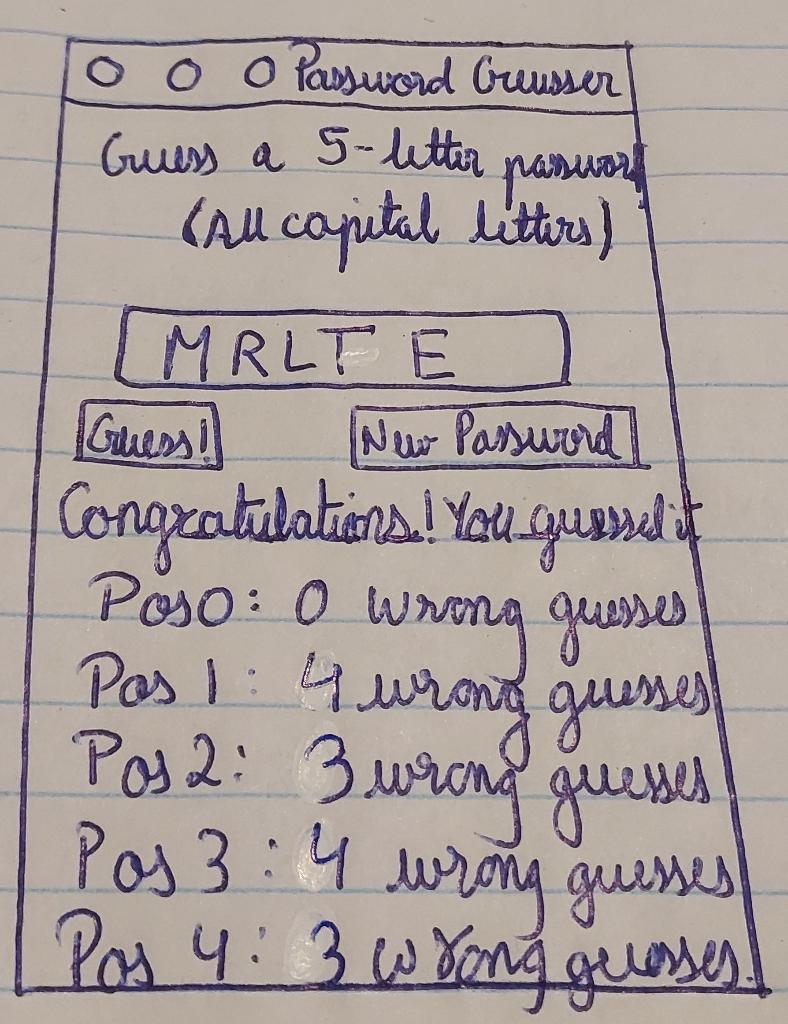 Password Greusser
Guess a 5-letter password
(All capital letters)
MRLTE
Guess! New Password
Congratulations! You guessed it
Pos0: 0 wrong guesses
Pos 1: 4 wrong guesses
Pos 2: 3 wrong guesses
Pos 3: 4 wrong guesses
Pos 4: 3 wrong guesses.